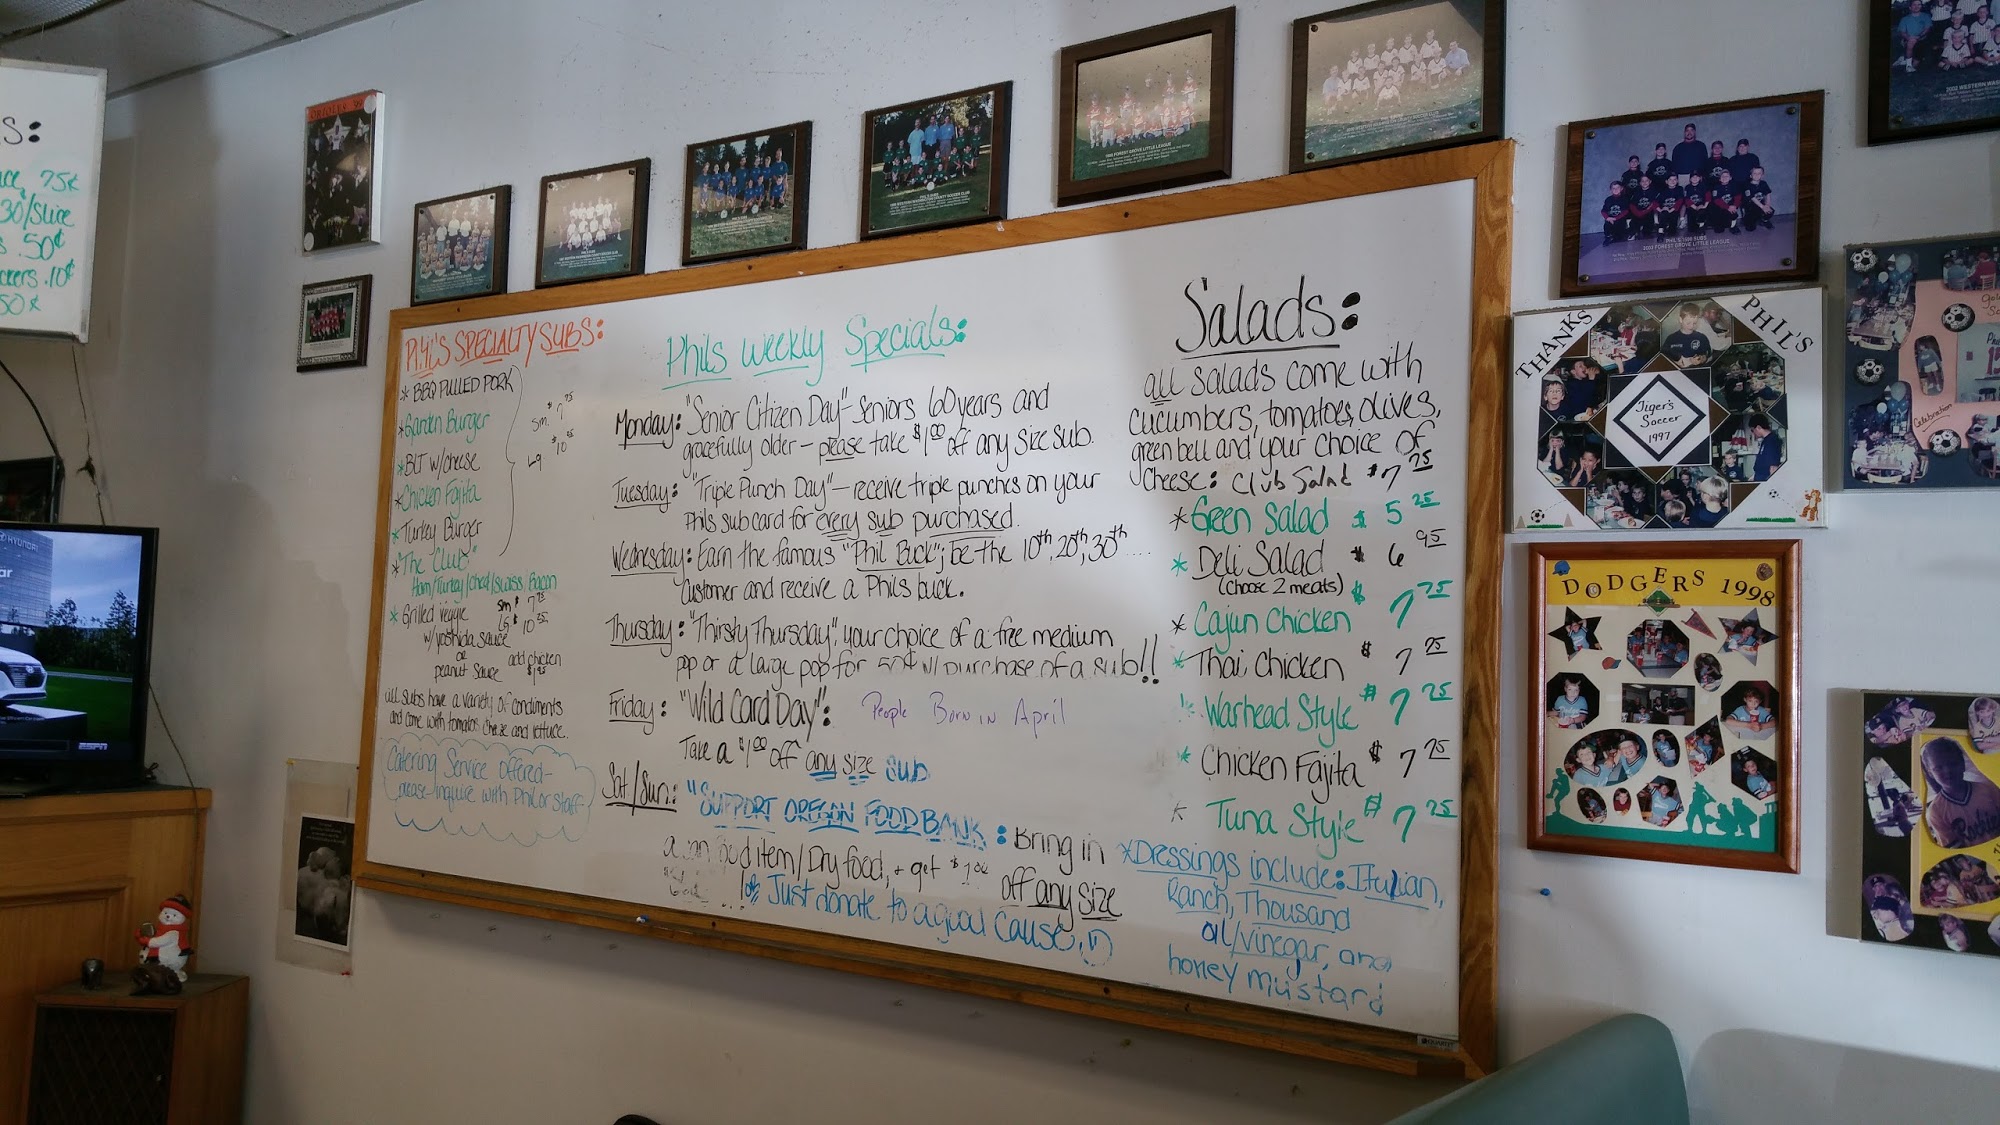 s:
75¢
30/slice
.50¢
.10¢
50¢
HYUNDAI
ESPN
ORIOLES
PHIL'S SPECIALTY SUBS:
* BBQ PULLED PORK
* Garden Burger
* BLT w/cheese
* Chicken Fajita
* Turkey Burger
* "The Club"
Ham/Turkey/Ched/Swiss/Bacon
sm. $7.75
Lg $10
* Grilled Veggie sm $7.75
w/yoshida sauce Lg $10
or
peanut sauce add chicken
$1.95
all subs have a variety of condiments
and come with tomatos cheese and lettuce.
Catering Service offered-
please inquire with Phil or staff
Phils weekly Specials:
Monday: "Senior Citizen Day"- Seniors 60 years and
gracefully older - please take $1.00 off any size sub.
Tuesday: "Triple Punch Day" - receive triple punches on your
Phils sub card for every sub purchased.
Wednesday: Earn the famous "Phil Buck"; be the 10th, 20th, 30th ....
Customer and receive a Phils buck.
Thursday: "Thirsty Thursday", your choice of a free medium
pop or a large pop for 50¢ w/ purchase of a sub!!
Friday: "Wild Card Day": People Born in April
Take a $1.00 off any size sub
Sat/Sun: "SUPPORT OREGON FOOD BANK: Bring in
a can food item/Dry food, + get $1.00 off any size
Just donate to a good cause.
Salads:
all salads come with
cucumbers, tomatoes, olives,
green bell and your choice of
cheese: Club Salad $7.75
* Green Salad $5.25
* Deli Salad $6.95
(choose 2 meats)
* Cajun Chicken $7.75
* Thai Chicken $7.75
* Warhead Style $7.25
* Chicken Fajita $7.75
* Tuna Style $7.25
* Dressings include: Italian,
Ranch, Thousand
oil/vinegar, and
honey mustard
QUARTET
PHIL'S 1998 SUBS
2003 FOREST GROVE LITTLE LEAGUE
1995 FOREST GROVE LITTLE LEAGUE
THANKS PHIL'S
Tiger's
Soccer
1997
DODGERS 1998
Celebration